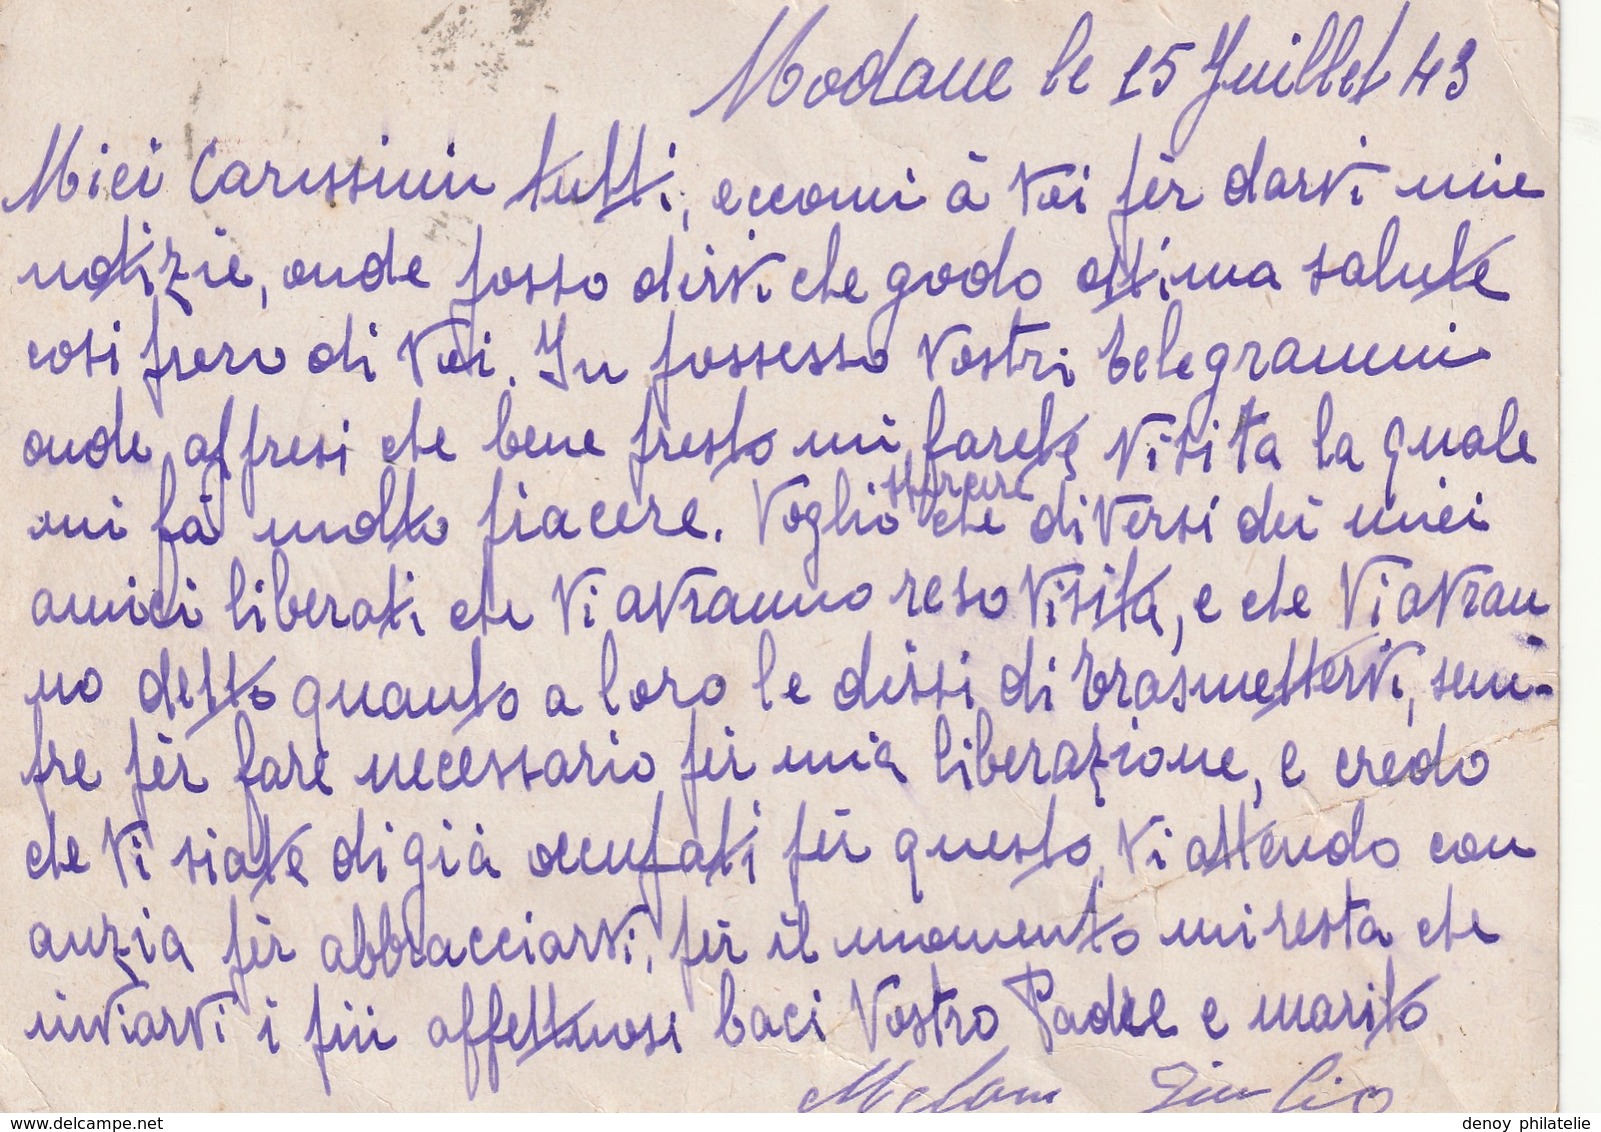 Modane le 15 Juillet 43
Miei Carissimi tutti, eccomi à Voi pèr darvi mie
notizie, onde posso dirvi che godo ottima salute
cosi spero di Voi. In possesso Vostri telegrammi
onde appresi che bene presto mi farete Visita la quale
mi fà molto piacere. Voglio sperare che diversi dei miei
amici liberati che Vi avranno reso Visita, e che Vi avran
no detto quanto a loro le dissi di trasmettervi, sem-
pre pèr fare necessario pèr mia liberazione, e credo
che Vi siate di già occupati pèr questo, Vi attendo con
anzia pèr abbracciarvi, pèr il momento mi resta che
inviarvi i più affettuosi baci Vostro Padre e marito
Giulio
denoy philatelie
www.delcampe.net